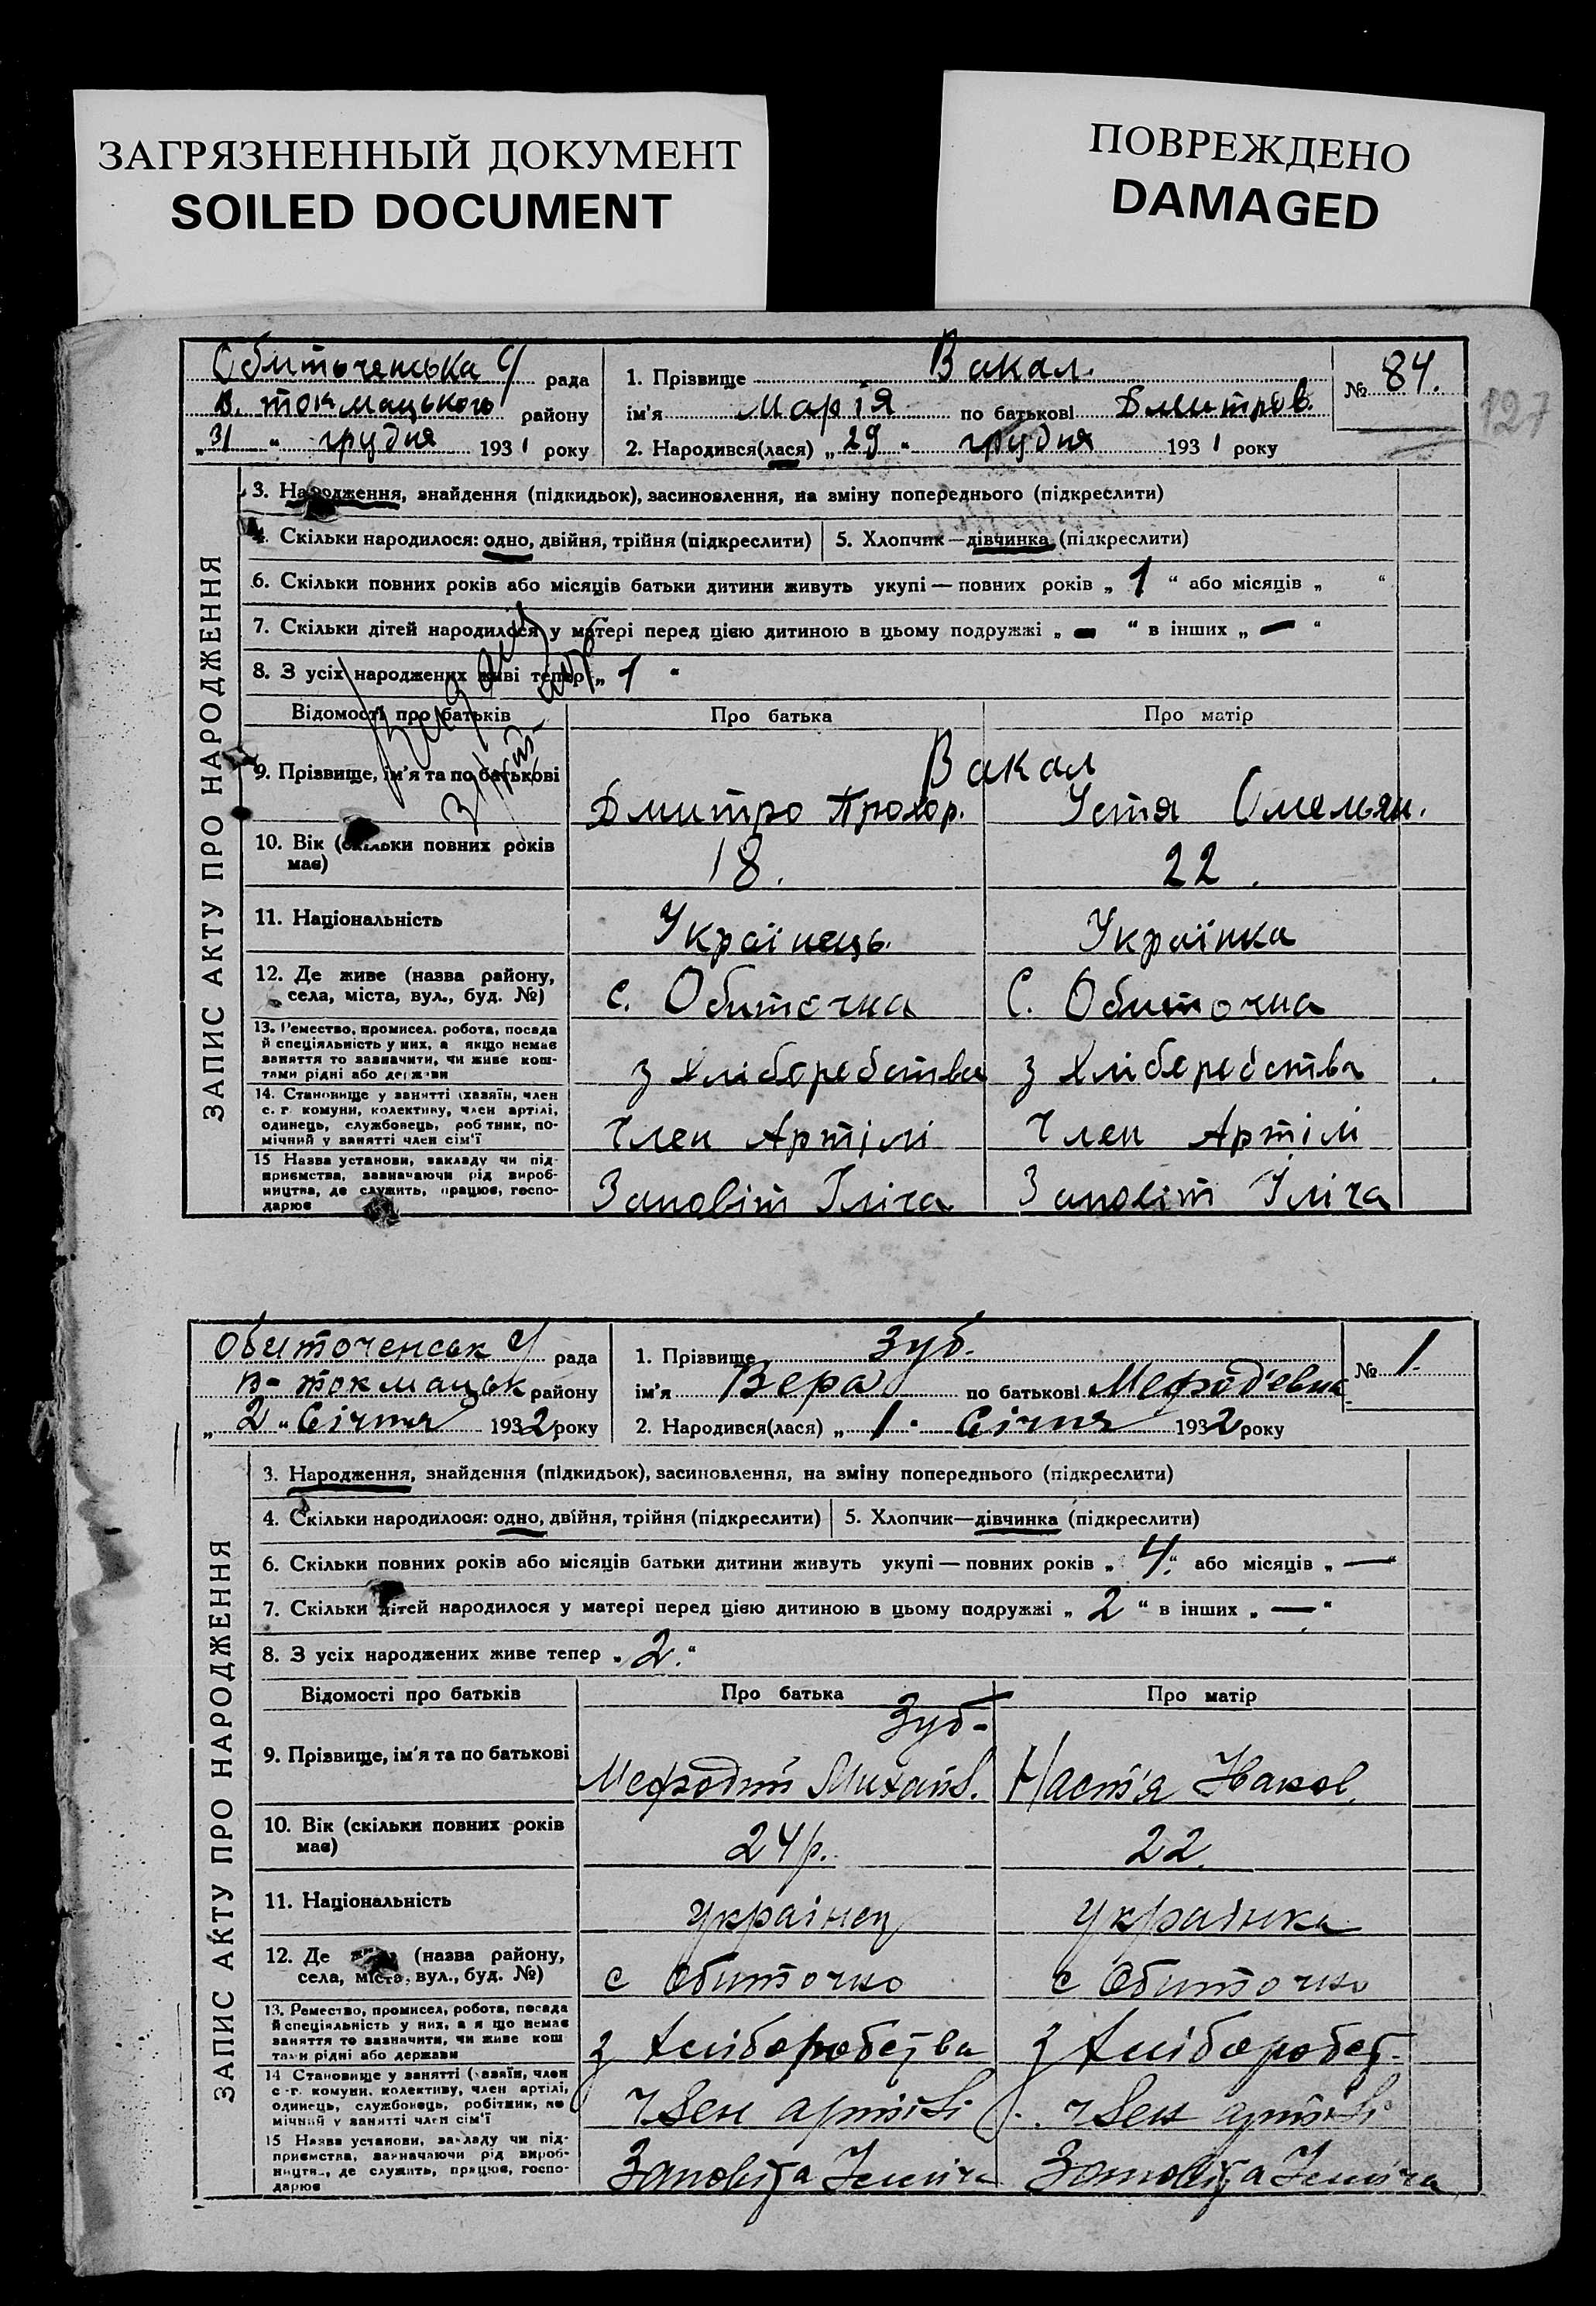 ЗАГРЯЗНЕННЫЙ ДОКУМЕНТ
SOILED DOCUMENT
ПОВРЕЖДЕНО
DAMAGED
127
Обиточенська с/ рада
В. токмацького району
„31“ грудня 1931 року
1. Прізвище Вакал.
ім'я Марія по батькові Дмитров.
2. Народився(лася) „29“ грудня 1931 року
№ 84.
ЗАПИС АКТУ ПРО НАРОДЖЕННЯ
3. Народження, знайдення (підкидьок), засиновлення, на зміну попереднього (підкреслити)
4. Скільки народилося: одно, двійня, трійня (підкреслити)
5. Хлопчик—дівчинка (підкреслити)
6. Скільки повних років або місяців батьки дитини живуть укупі — повних років „ 1 “ або місяців „ “
7. Скільки дітей народилося у матері перед цією дитиною в цьому подружжі „ — “ в інших „ — “
8. З усіх народжених живі тепер „ 1 “
Відомості про батьків
Про батька
Про матір
9. Прізвище, ім'я та по батькові
Вакал
Дмитро Прохор.
Устя Омельян.
10. Вік (скільки повних років має)
18.
22.
11. Національність
Українець.
Українка
12. Де живе (назва району, села, міста, вул., буд. №)
с. Обиточна
С. Обиточна
13. Ремество, промисел, робота, посада
й спеціяльність у них, а якщо немає
заняття то зазначити, чи живе кош-
тами рідні або держави
з хліборобства
з хліборобства
14. Становище у занятті (хазяїн, член
с. г. комуни, колективу, член артілі,
одинець, службовець, робітник, по-
мічний у занятті член сім'ї
Член Артілі
Член Артілі
15 Назва установи, закладу чи під-
приємства, зазначаючи рід вироб-
ництва, де служить, працює, госпо-
дарює
Заповіт Ілліча
Заповіт Ілліча
Обиточенськ с/ рада
В-токмацьк району
„2“ Січня 1932 року
1. Прізвище Зуб.
ім'я Вера по батькові Мефод'евна
2. Народився(лася) „1“ Січня 1932 року
№ 1.
ЗАПИС АКТУ ПРО НАРОДЖЕННЯ
3. Народження, знайдення (підкидьок), засиновлення, на зміну попереднього (підкреслити)
4. Скільки народилося: одно, двійня, трійня (підкреслити)
5. Хлопчик—дівчинка (підкреслити)
6. Скільки повних років або місяців батьки дитини живуть укупі — повних років „ 4 “ або місяців „ — “
7. Скільки дітей народилося у матері перед цією дитиною в цьому подружжі „ 2 “ в інших „ — “
8. З усіх народжених живе тепер „ 2. “
Відомості про батьків
Про батька
Про матір
9. Прізвище, ім'я та по батькові
Зуб-
Мефодий Михайл.
Наст'я Яковл.
10. Вік (скільки повних років має)
24р.
22.
11. Національність
українец
українка
12. Де живе (назва району, села, міста, вул., буд. №)
с Обиточно
с Обиточно
13. Ремество, промисел, робота, посада
й спеціяльність у них, а я що немає
заняття то зазначити, чи живе кош
тами рідні або держави
з хліборобства
з хлібороб
14 Становище у занятті (хазяїн, член
с-г. комуни, колективу, член артілі,
одинець, службовець, робітник, по
мічний у занятті член сім'ї
член артілі
член артілі
15 Назва установи, закладу чи під-
приємства, зазначаючи рід вироб-
ництва, де служить, працює, госпо-
дарює
Заповіта Ілліча
Заповіта Ілліча